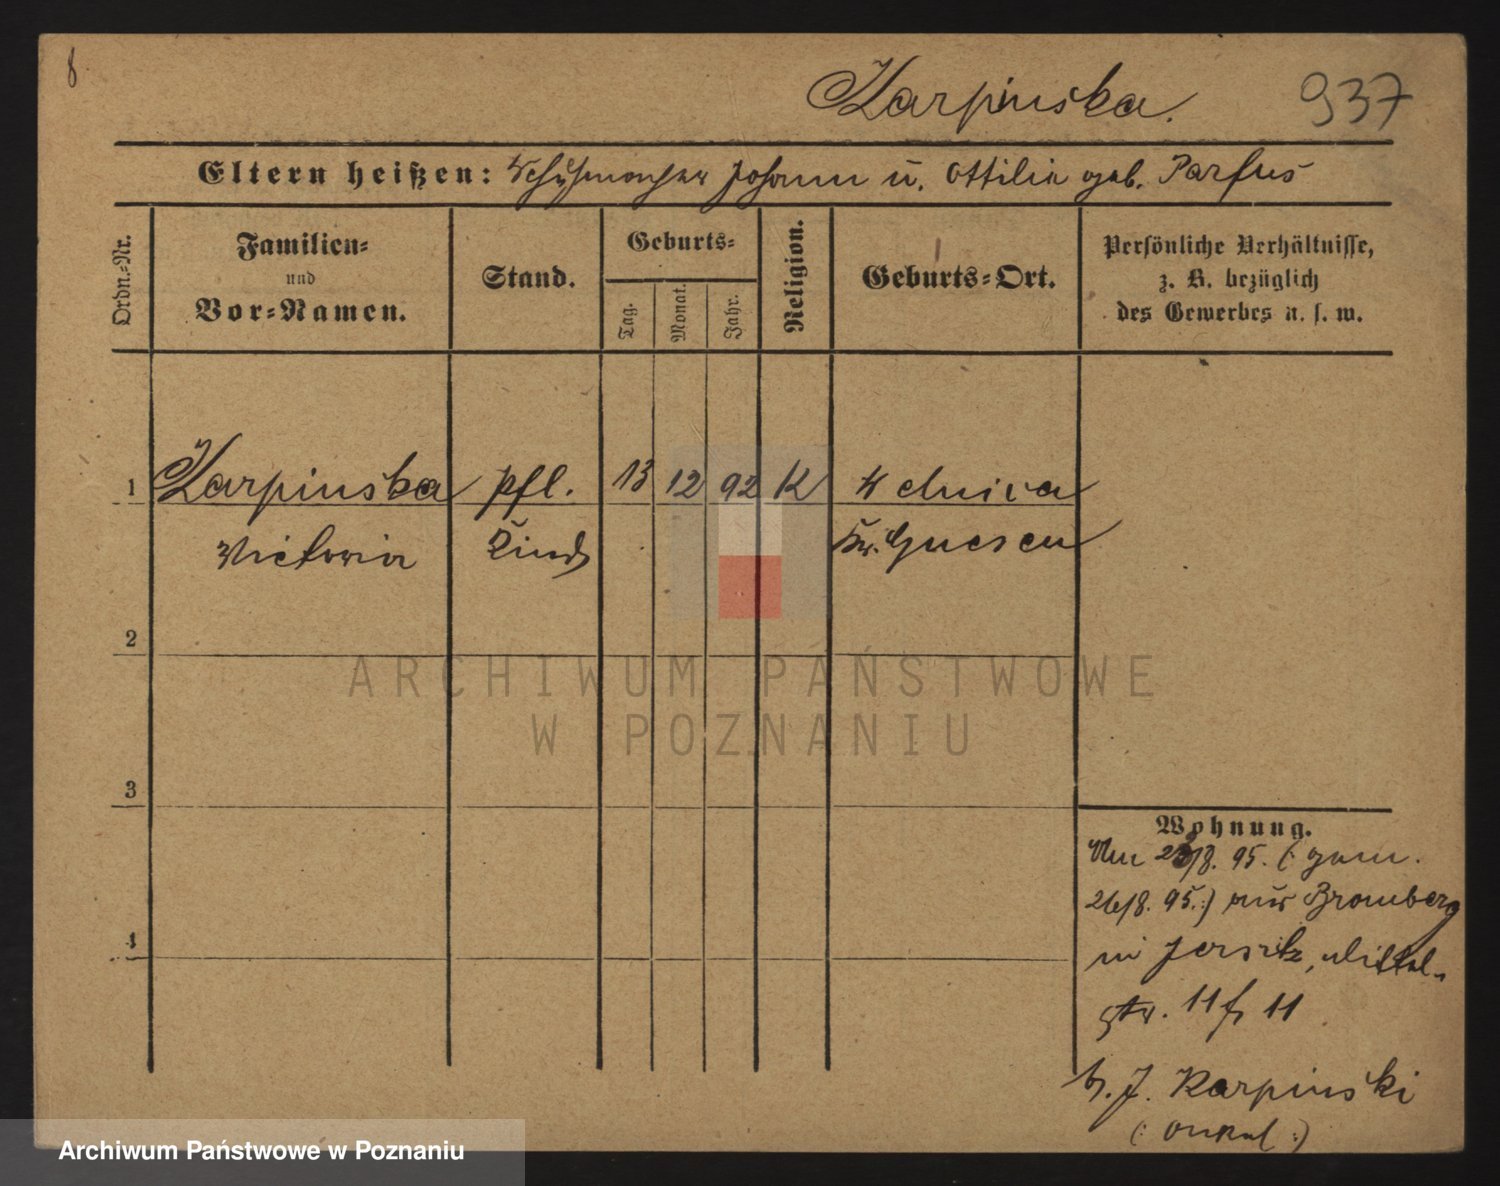 8
Karpinska.
937
Eltern heißen: Schuhmacher Johann u. Ottilie geb. Parfus
Ordn.-Nr.
Familien-
und
Vor-Namen.
Stand.
Geburts-
Tag.
Monat.
Jahr.
Religion.
Geburts-Ort.
Persönliche Verhältnisse,
z. B. bezüglich
des Gewerbes u. s. w.
1
Karpinska
Pfl.
13
12
92
K
Welnica
Victoria
Kind
Kr. Gnesen
2
3
4
Wohnung.
/8. 95. (: gem.
26/8. 95. :) aus Bromberg
in Jersitz, Mittel-
str. 11 f 11
b. J. Karpinski
(: Onkel :)
ARCHIWUM PAŃSTWOWE
W POZNANIU
Archiwum Państwowe w Poznaniu